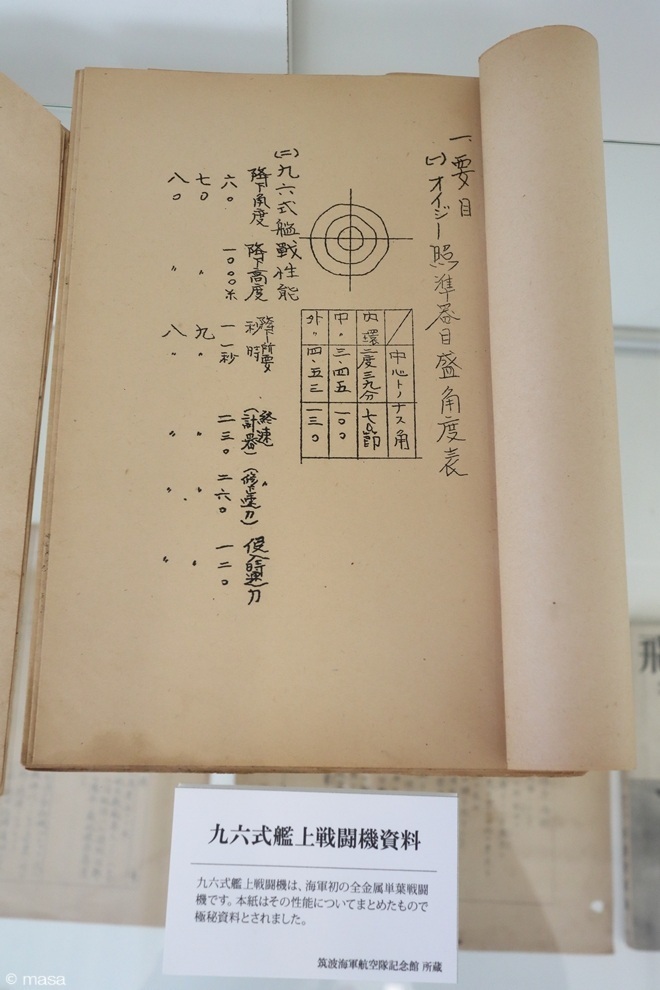 一、要目
(一)オイジー照準器目盛角度表
中心トノナス角
内環 二度三九分 七〇節
中〃 三・四五 一〇〇
外〃 四・五三 一三〇
(二)九六式艦戦性能
降下角度 降下高度 降下所要秒時 終速(計器) 〃(修正速力) 侵入時速力
六〇 一〇〇〇米 一一秒 二三〇 二六〇 一二〇
七〇 〃 九〃 〃 〃 〃
八〇 〃 八〃 〃 〃 〃
九六式艦上戦闘機資料
九六式艦上戦闘機は、海軍初の全金属単葉戦闘
機です。本紙はその性能についてまとめたもので
極秘資料とされました。
筑波海軍航空隊記念館 所蔵
飛
© masa